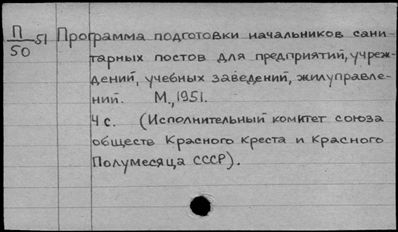 П/50 51 Программа подготовки начальников сани-
тарных постов для предприятий, учреж-
дений, учебных заведений, жилуправле-
ний. М., 1951.
4 с. (Исполнительный комитет союза
обществ Красного Креста и Красного
Полумесяца СССР).